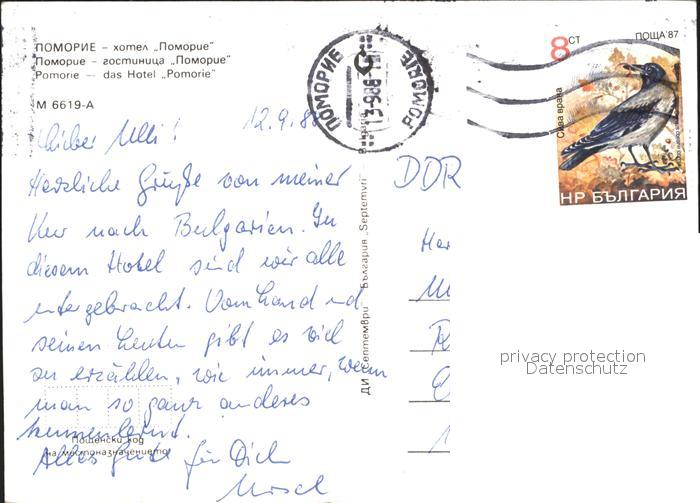 ПОМОРИЕ – хотел „Поморие“
Поморие – гостиница „Поморие“
Pomorie – das Hotel „Pomorie“
М 6619-А
ПОМОРИЕ
POMORIE
8СТ
ПОЩА'87
Сива врана
НР БЪЛГАРИЯ
12.9.88
Lieber Ulli!
Herzliche Grüße von meiner
Kur nach Bulgarien. In
diesem Hotel sind wir alle
untergebracht. Vom Land und
seinen Leuten gibt es viel
zu erzählen, wie immer, wenn
man so ganz anderes
kennenlernt.
Alles Gute für Dich
Ursel
Пощенски код
на местоназначението
ДИ „Септември“ България „Septemvri“ Bulgaria
DDR
privacy protection
Datenschutz